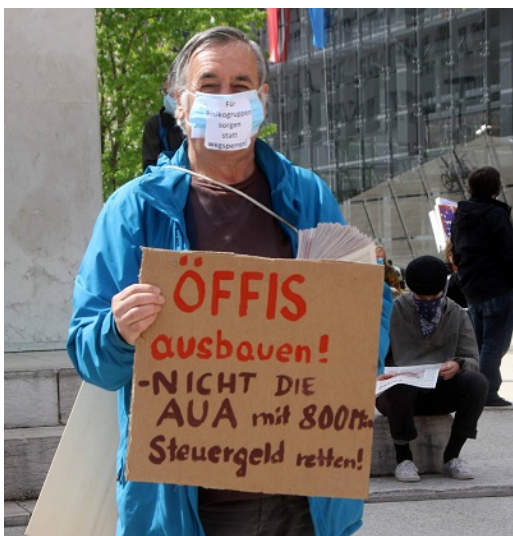 Für
Risikogruppen
sorgen
statt
wegsperren!
ÖFFIS
ausbauen!
-NICHT DIE
AUA mit 800 Mio.
Steuergeld retten!